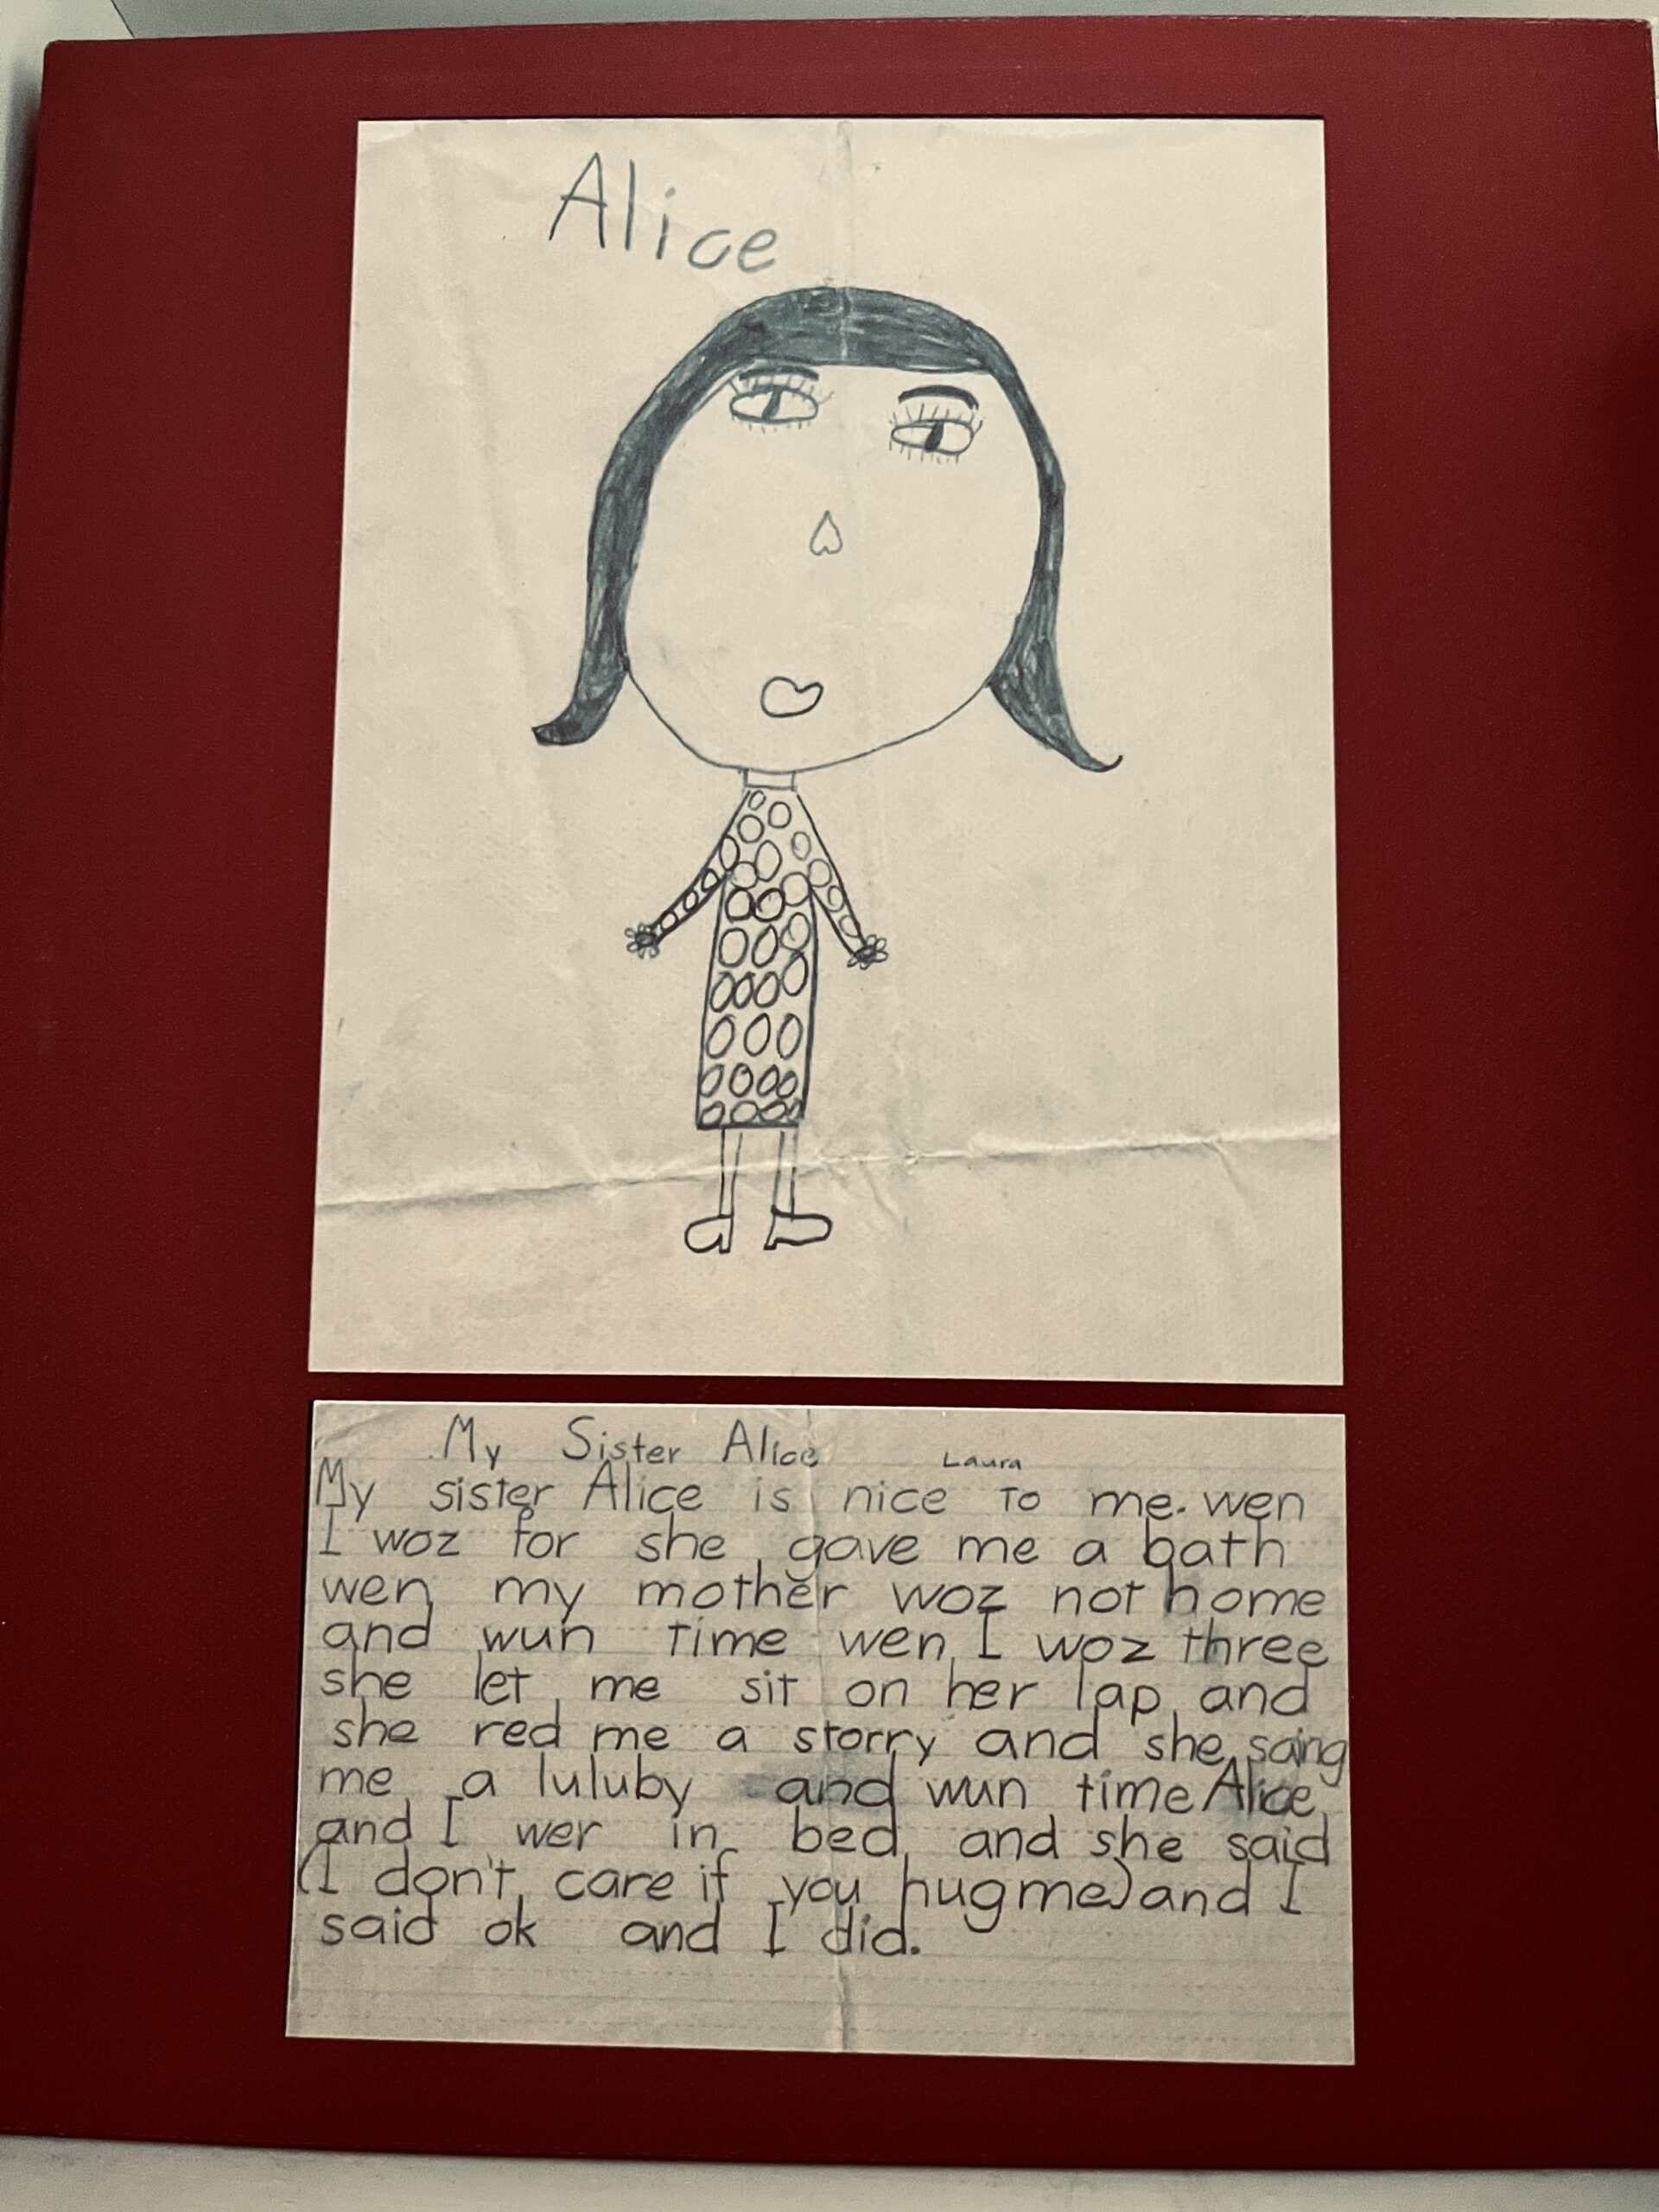 Alice
My Sister Alice Laura
My sister Alice is nice to me. wen
I woz for she gave me a bath
wen my mother woz not home
and wun time wen I woz three
she let me sit on her lap and
she red me a storry and she saing
me a luluby and wun time Alice
and I wer in bed and she said
(I don't care if you hug me) and I
said ok and I did.